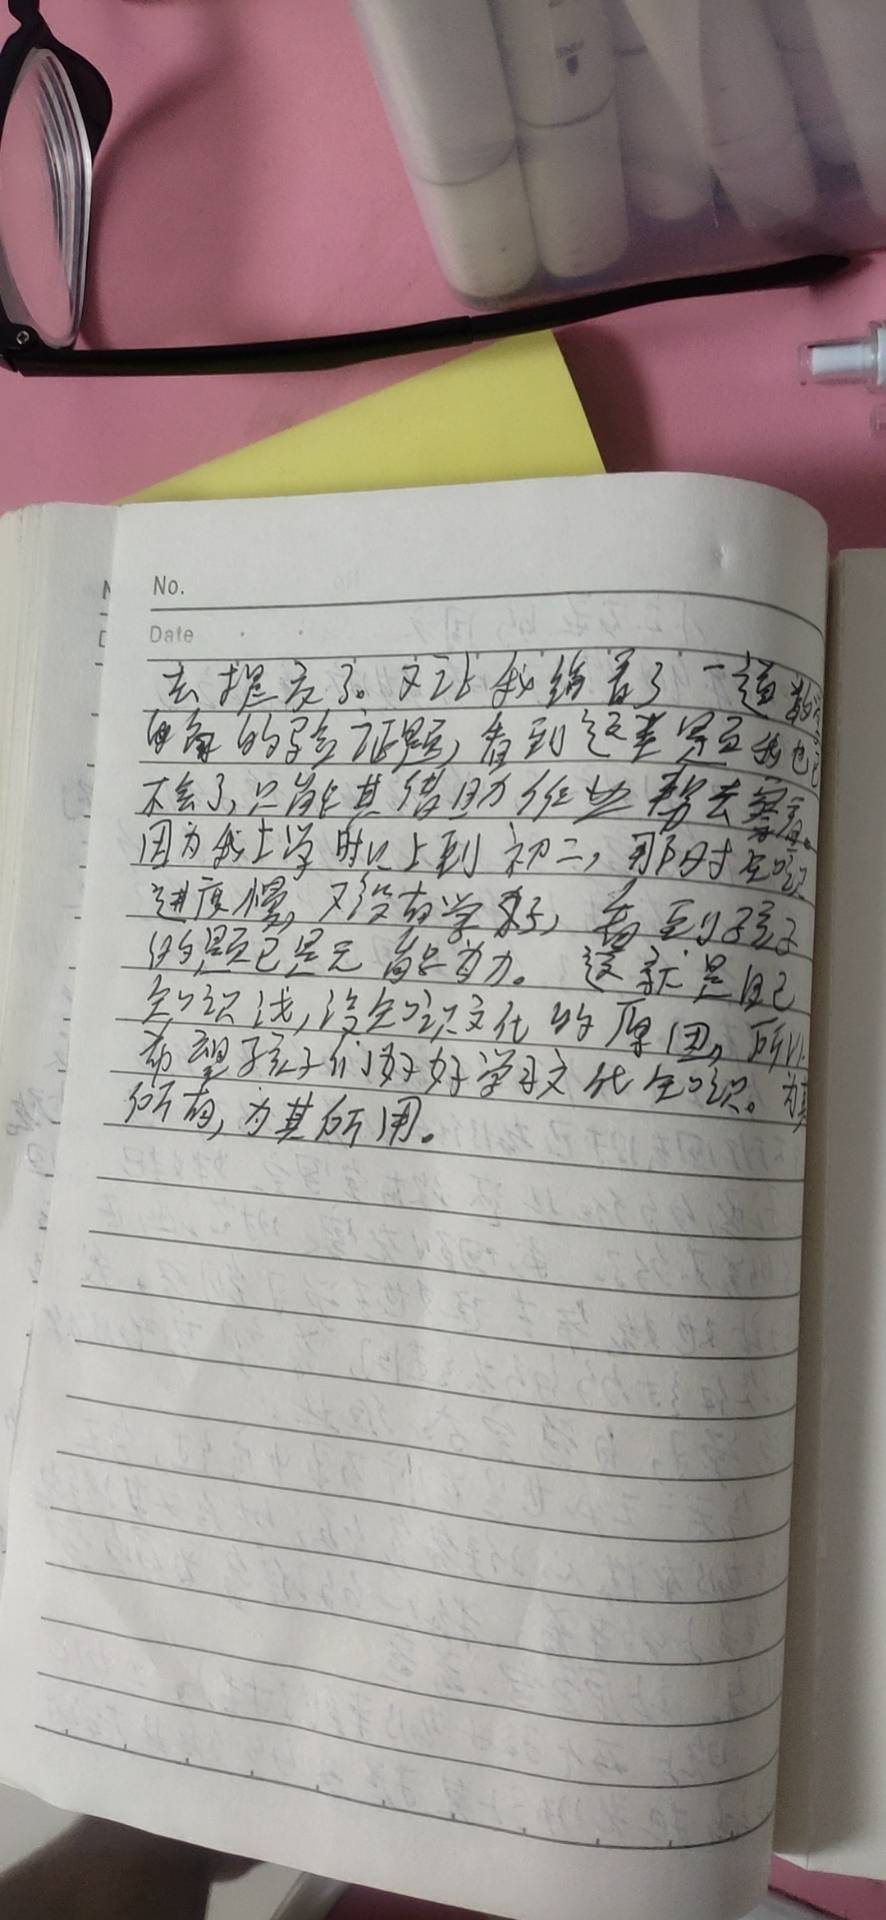 No.
Date
去提交了。又让我给看了一道数学
的验证题，看到这类题我也
不会了，只能其借助作业帮去察看。
因为我上学时只上到初二，那时知识
进度慢，又没有学好，看到孩子
的题已是无能为力。这就是自己
知识浅，没知识文化的原因，所以
希望孩子们好好学习文化知识。为其
所有，为其所用。